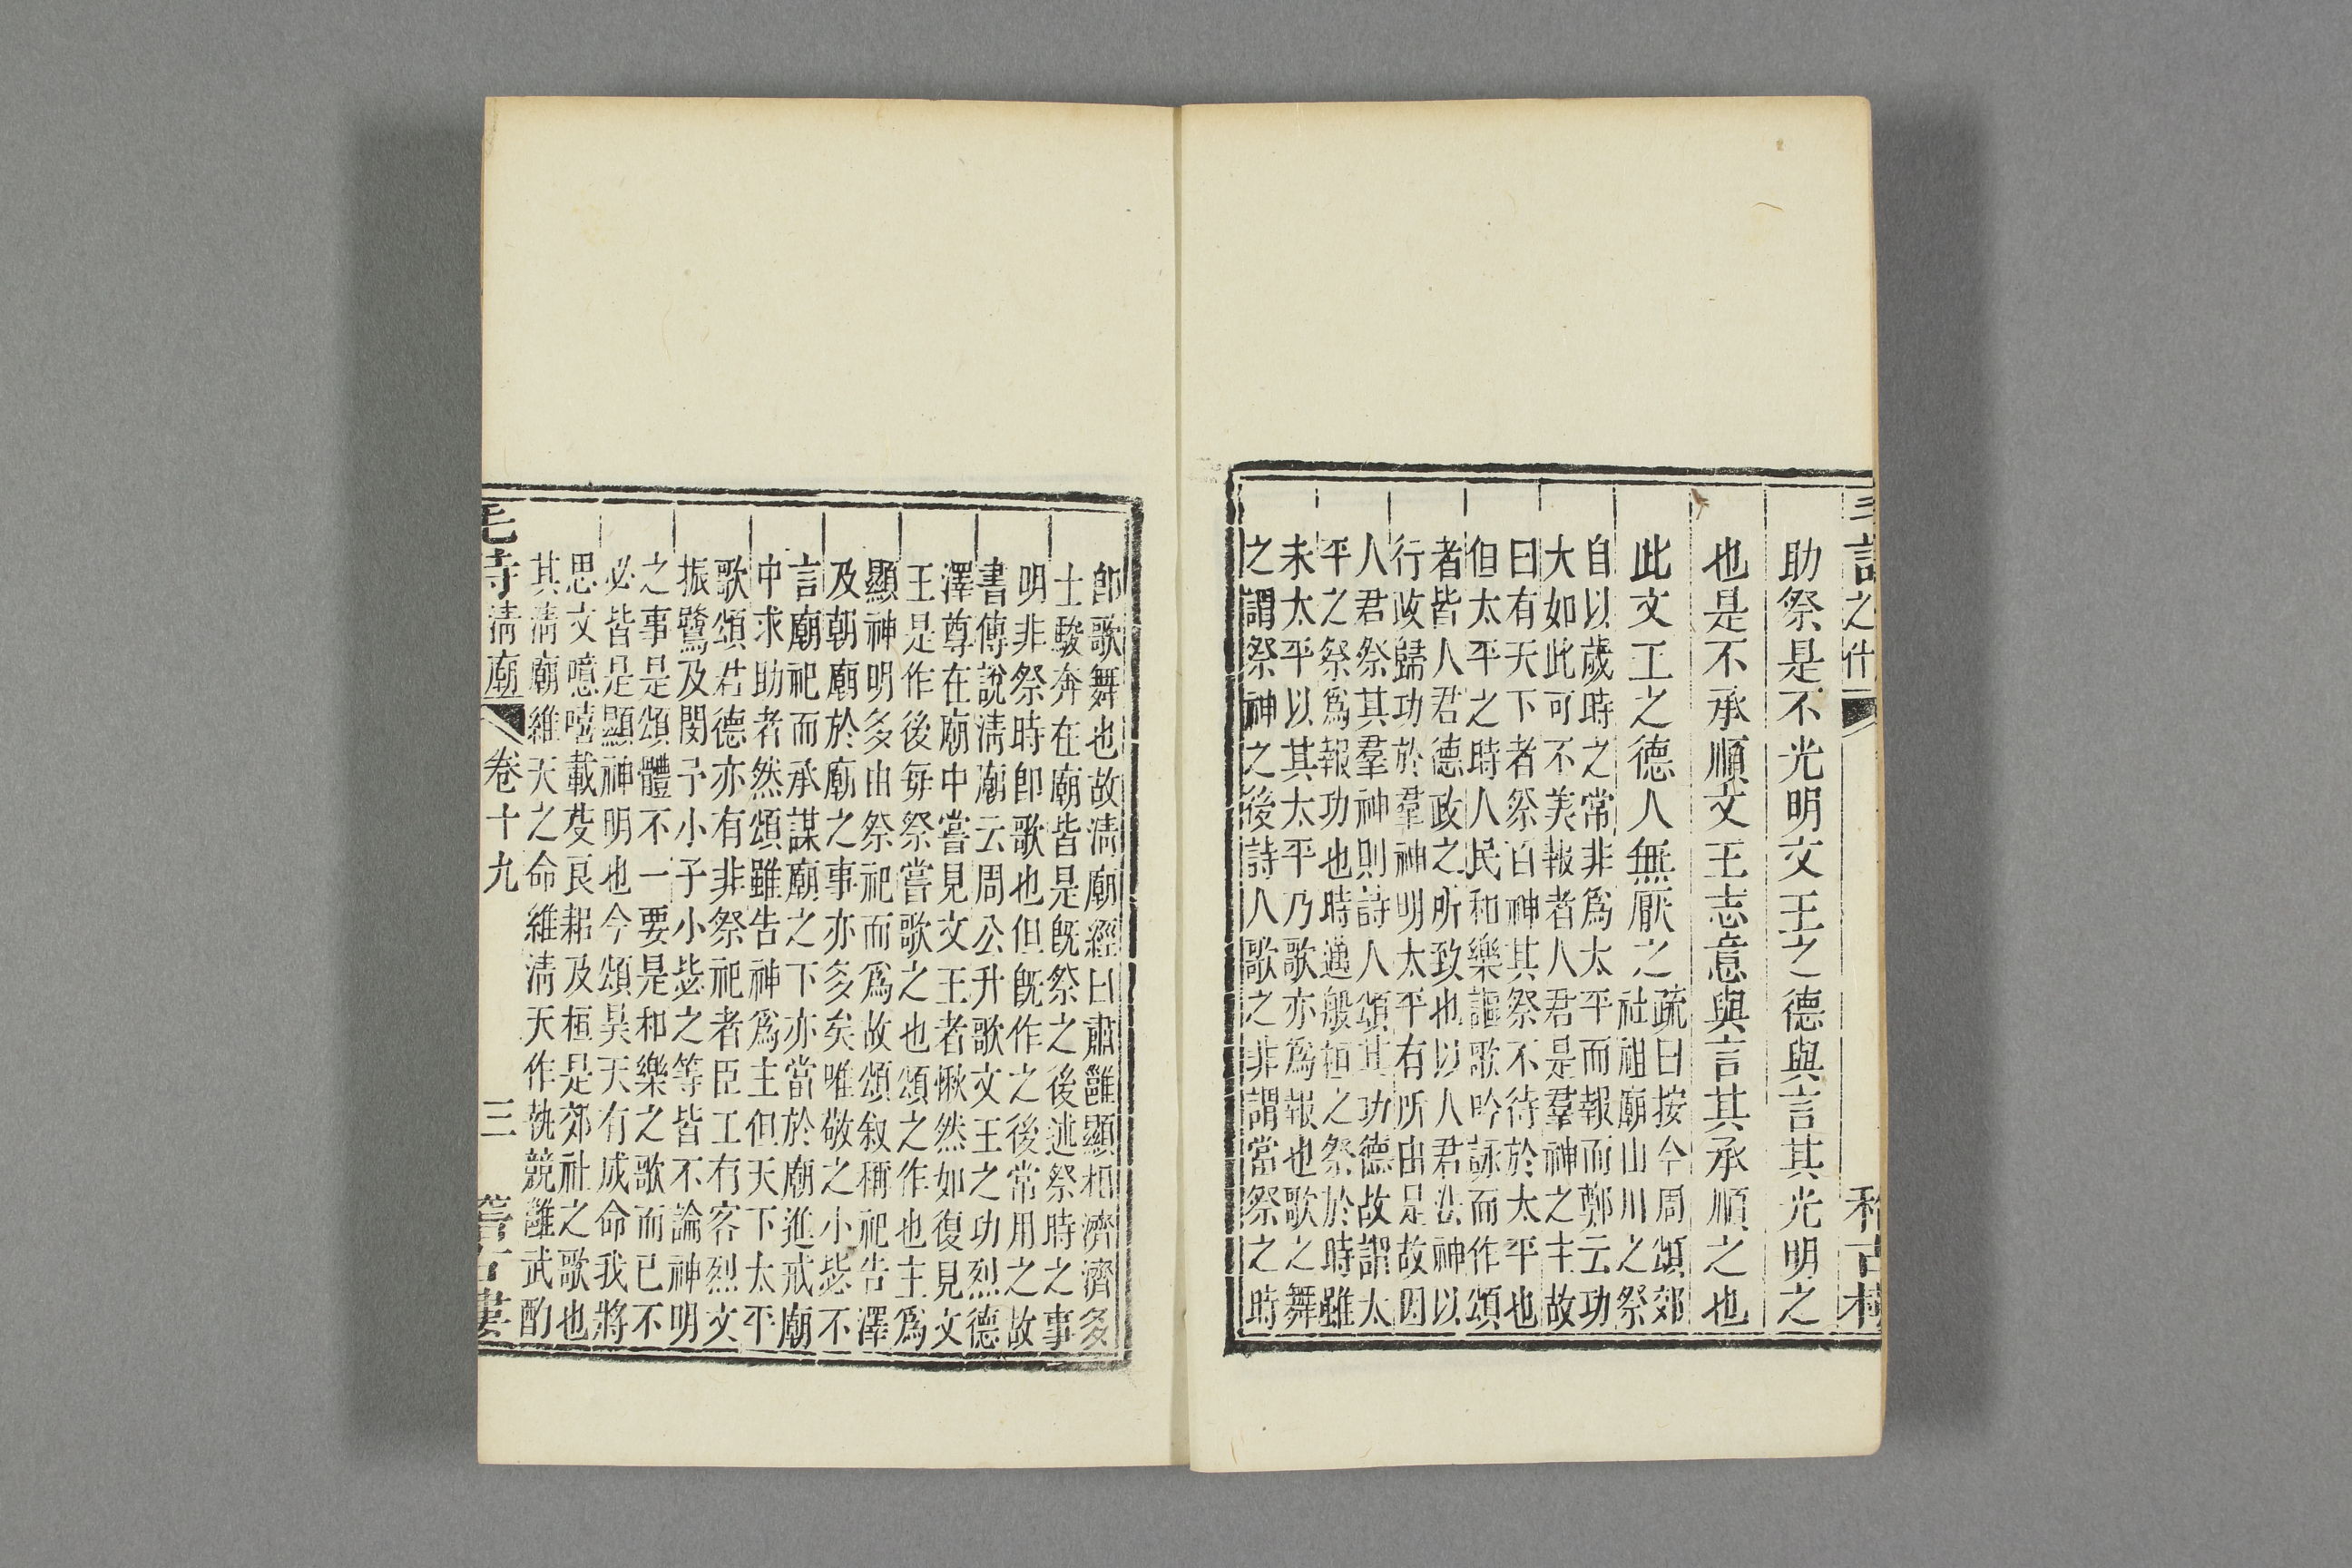 詩之什 稽古樓
助祭是不光明文王之德與言其光明之
也是不承順文王志意與言其承順之也
此文王之德人無厭之
疏曰按今周頌郊
社祖廟山川之祭
自以歲時之常非爲太平而報而鄭云功
大如此可不美報者人君是羣神之主故
曰有天下者祭百神其祭不待於太平也
但太平之時人民和樂謳歌吟詠而作頌
者皆人君德政之所致也以人君法神以
行政歸功於羣神明太平有所由是故因
人君祭其羣神則詩人頌其功德故謂太
平之祭爲報功也時邁般桓之祭於時雖
未太平以其太平乃歌亦爲報也歌之舞
之謂祭神之後詩人歌之非謂當祭之時
卽歌舞也故清廟經曰肅雝顯相濟濟多
士駿奔在廟皆是旣祭之後述祭時之事
明非祭時卽歌也但旣作之後常用之故
書傳說清廟云周公升歌文王之功烈德
澤尊在廟中嘗見文王者愀然如復見文
王是作後每祭嘗歌之也頌之作也主爲
顯神明多由祭祀而爲故頌叙稱祀告澤
及朝廟於廟之事亦多矣唯敬之小毖不
言廟祀而承謀廟之下亦當於廟進戒廟
中求助者然頌雖告神爲主但天下太平
歌頌君德亦有非祭祀者臣工有客烈文
振鷺及閔予小子小毖之等皆不論神明
之事是頌體不一要是和樂之歌而已不
必皆是顯神明也今頌昊天有成命我將
思文噫嘻載芟良耜及桓是郊社之歌也
其清廟維天之命維清天作執競雝武酌
毛詩清廟 卷十九 三 稽古樓